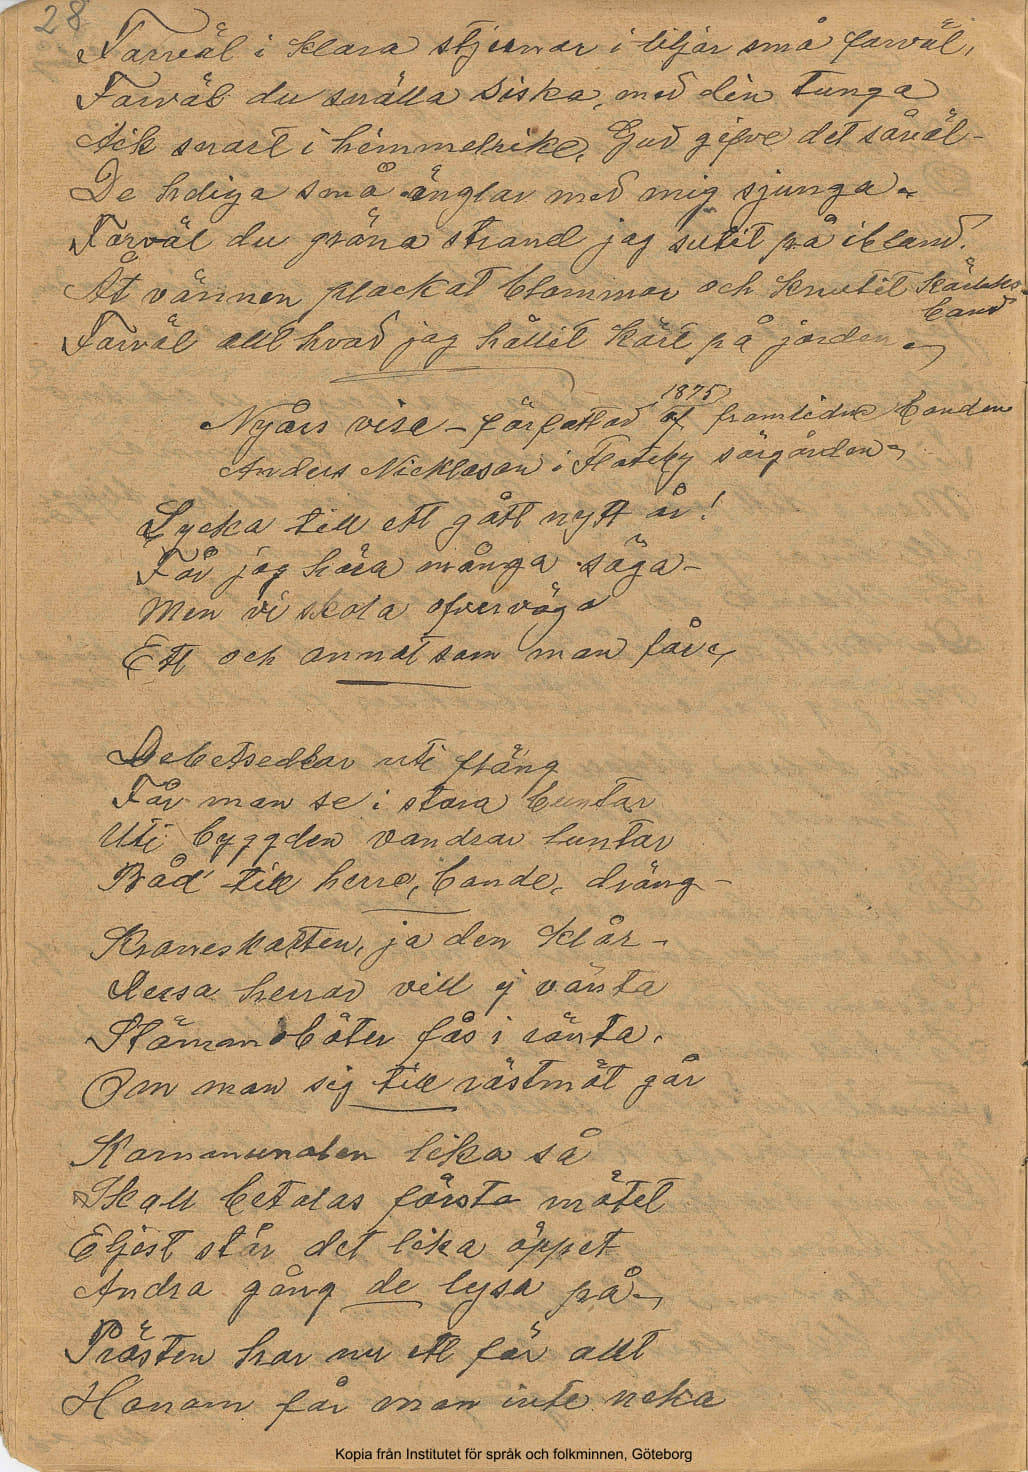 28
Farväl i klara stjernor i liljor små farväl,
Farväl du snälla siska, med din tunga
Ack snart i himmelrike, Gud gifve det såväl –
De hdiga små änglar med mig sjunga –
Farväl du gröna strand jag sutit på ibland.
Åt vännen plockat blommor och knutit kärleks-
band
Farväl allt hvad jag hållit kärt på jorden –
1875
Nyårs visa – författad af framlidne bonden
Anders Nicklasson i Flateby sörgården –
Lycka till ett gått nytt år!
Får jag höra många säga –
Men vi skola öfverväga
Ett och annat som man får,
Debetsedlar uti fläng
Får man se i stora buntar
Uti byggden vandrar luntar
Båd till herre, bonde, dräng –
Kroneskatten, ja den klår –
Dessa herrar vill ej vänta
Stämman böter fås i ränta.
Om man sig till rästmöt går
Kommunalen lika så
Skall betalas första mötet
Eljest står det lika öppet
Andra gång de lysa på –
Prästen har nu ett för allt
Honom får man inte neka
Kopia från Institutet för språk och folkminnen, Göteborg